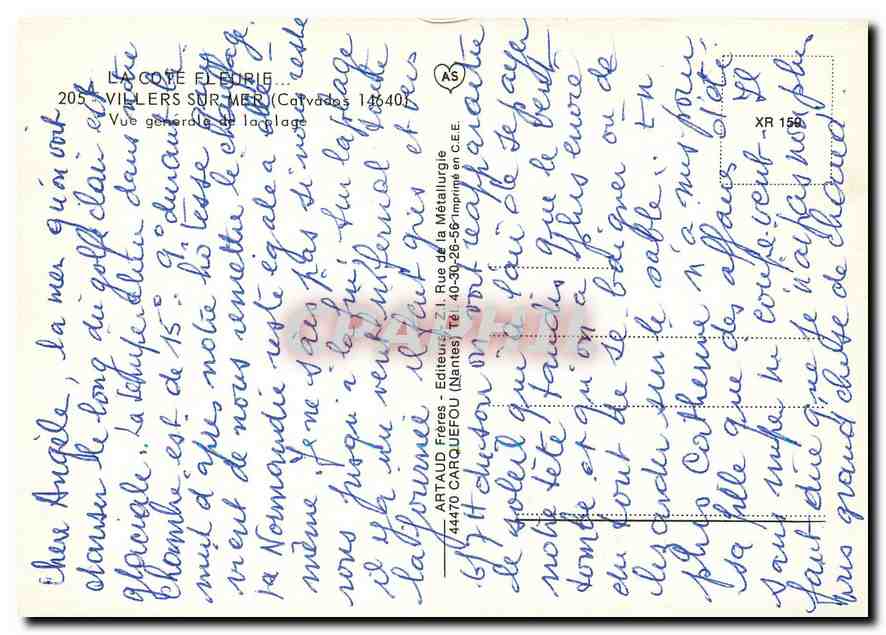 LA COTE FLEURIE...
205 - VILLERS SUR MER (Calvados 14640)
Vue générale de la plage
AS
XR 159
ARTAUD Frères - Editeurs - Z.I. Rue de la Métallurgie
44470 CARQUEFOU (Nantes) Tél. 40-30-26-56 Imprimé en C.E.E.
CPAPHIL
Chère Angèle, la mer qu'on voit
danser le long du golfe clair est
glaciale. La température dans notre
chambre est de 15° 9° durant la
nuit d'après notre hôtesse qui
vient de nous remettre le chauffage.
La Normandie reste égale à elle-
même. Je ne sais pas si nous reste
rons jusqu'à la fin. Sur la plage
il y a un vent infernal toute
la journée il fait gris et vers
6h 7H du soir on voit réapparaître
le soleil qui a l'air de se payer
notre tête, tandis que le vent
tombe et qu'on a plus envie
du tout de se baigner ou de
lézarder sur le sable. En
plus Catherine n'a mis pour
sa fille que des affaires d'été
sans imper ni coupe-vent. Il
faut dire que je n'ai pas non plus
pris grand chose de chaud.